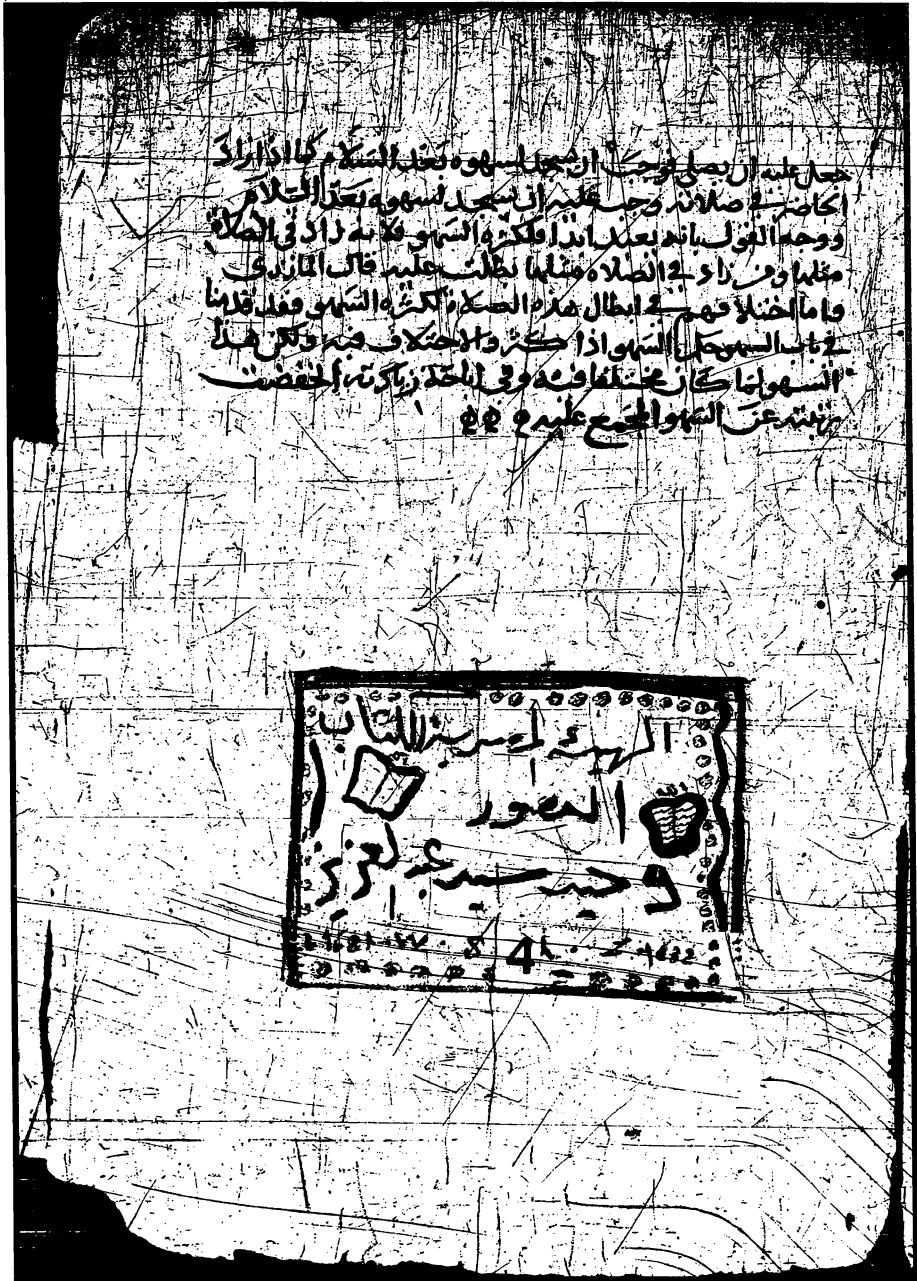 جعل عليه ان يصلي فوجب ان يسجد لسهوه بعد السلام كما اذا زاد
الحاضر في صلاته وجب عليه ان يسجد لسهوه بعد السلام
ووجه القول بانه يعيد ابدا فلكثرة السهو فلانه زاد في الصلاة
مثلها ومن زاد في الصلاه مثلها بطلت عليه قال المازري
واما اختلافهم في ابطال هذه الصلاة لكثرة السهو فقد قدمنا
في باب السهو حكم السهو اذا كثر والاختلاف فيه ولكن هذا
السهو لما كان مختلفا فيه وفي اباحة زيادته انخفضت
رتبته عن السهو المجمع عليه
الهيئة المصرية للكتاب
المصور
وحيد سيد عبد العزيز